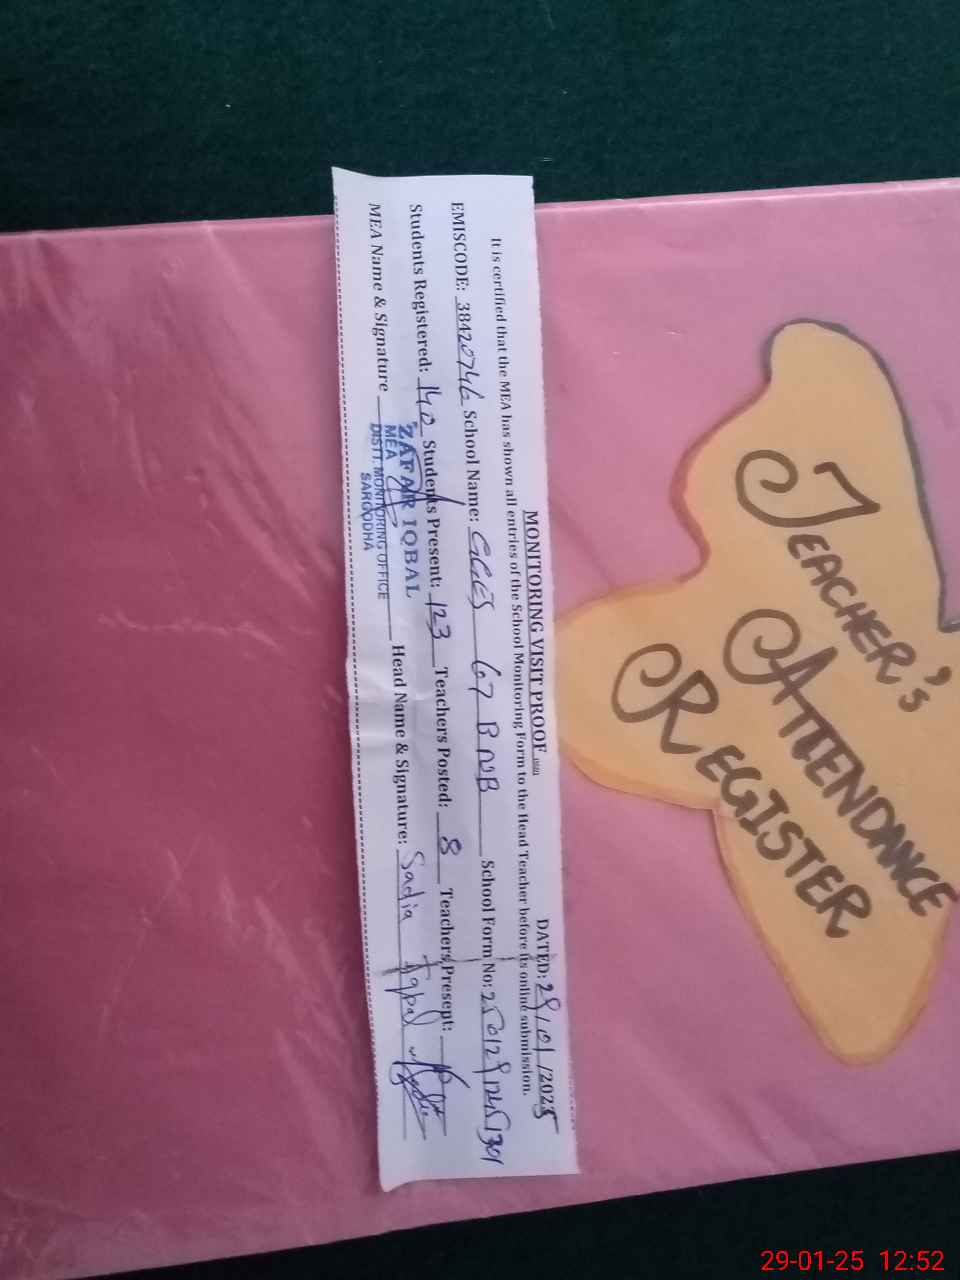 MONITORING VISIT PROOF
DATED: 29/01/2025
It is certified that the MEA has shown all entries of the School Monitoring Form to the Head Teacher before its online submission.
EMISCODE: 38420746 School Name: GGES 67 B NB School Form No:
Students Registered: 140 Students Present: 123 Teachers Posted: 8 Teachers Present:
MEA Name & Signature Head Name & Signature: Sadia Iqbal
ZAFAR IQBAL
MEA
DISTT. MONITORING OFFICE
SARGODHA
TEACHER'S
ATTENDANCE
REGISTER
29-01-25 12:52